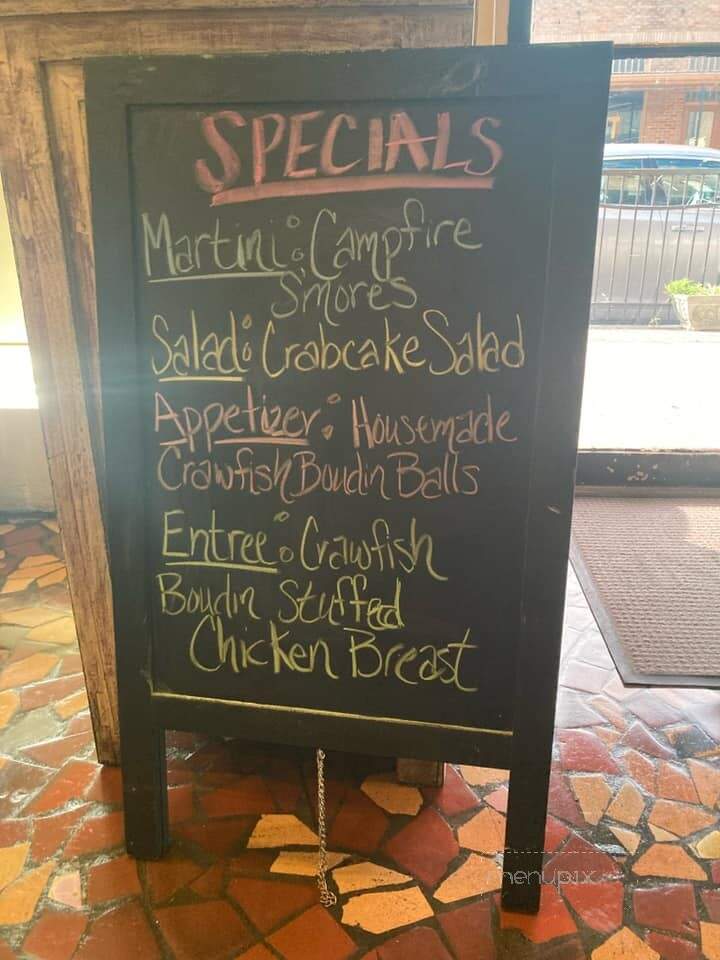 SPECIALS
Martini: Campfire
S'mores
Salad: Crabcake Salad
Appetizer: Housemade
Crawfish Boudin Balls
Entree: Crawfish
Boudin Stuffed
Chicken Breast
menupix